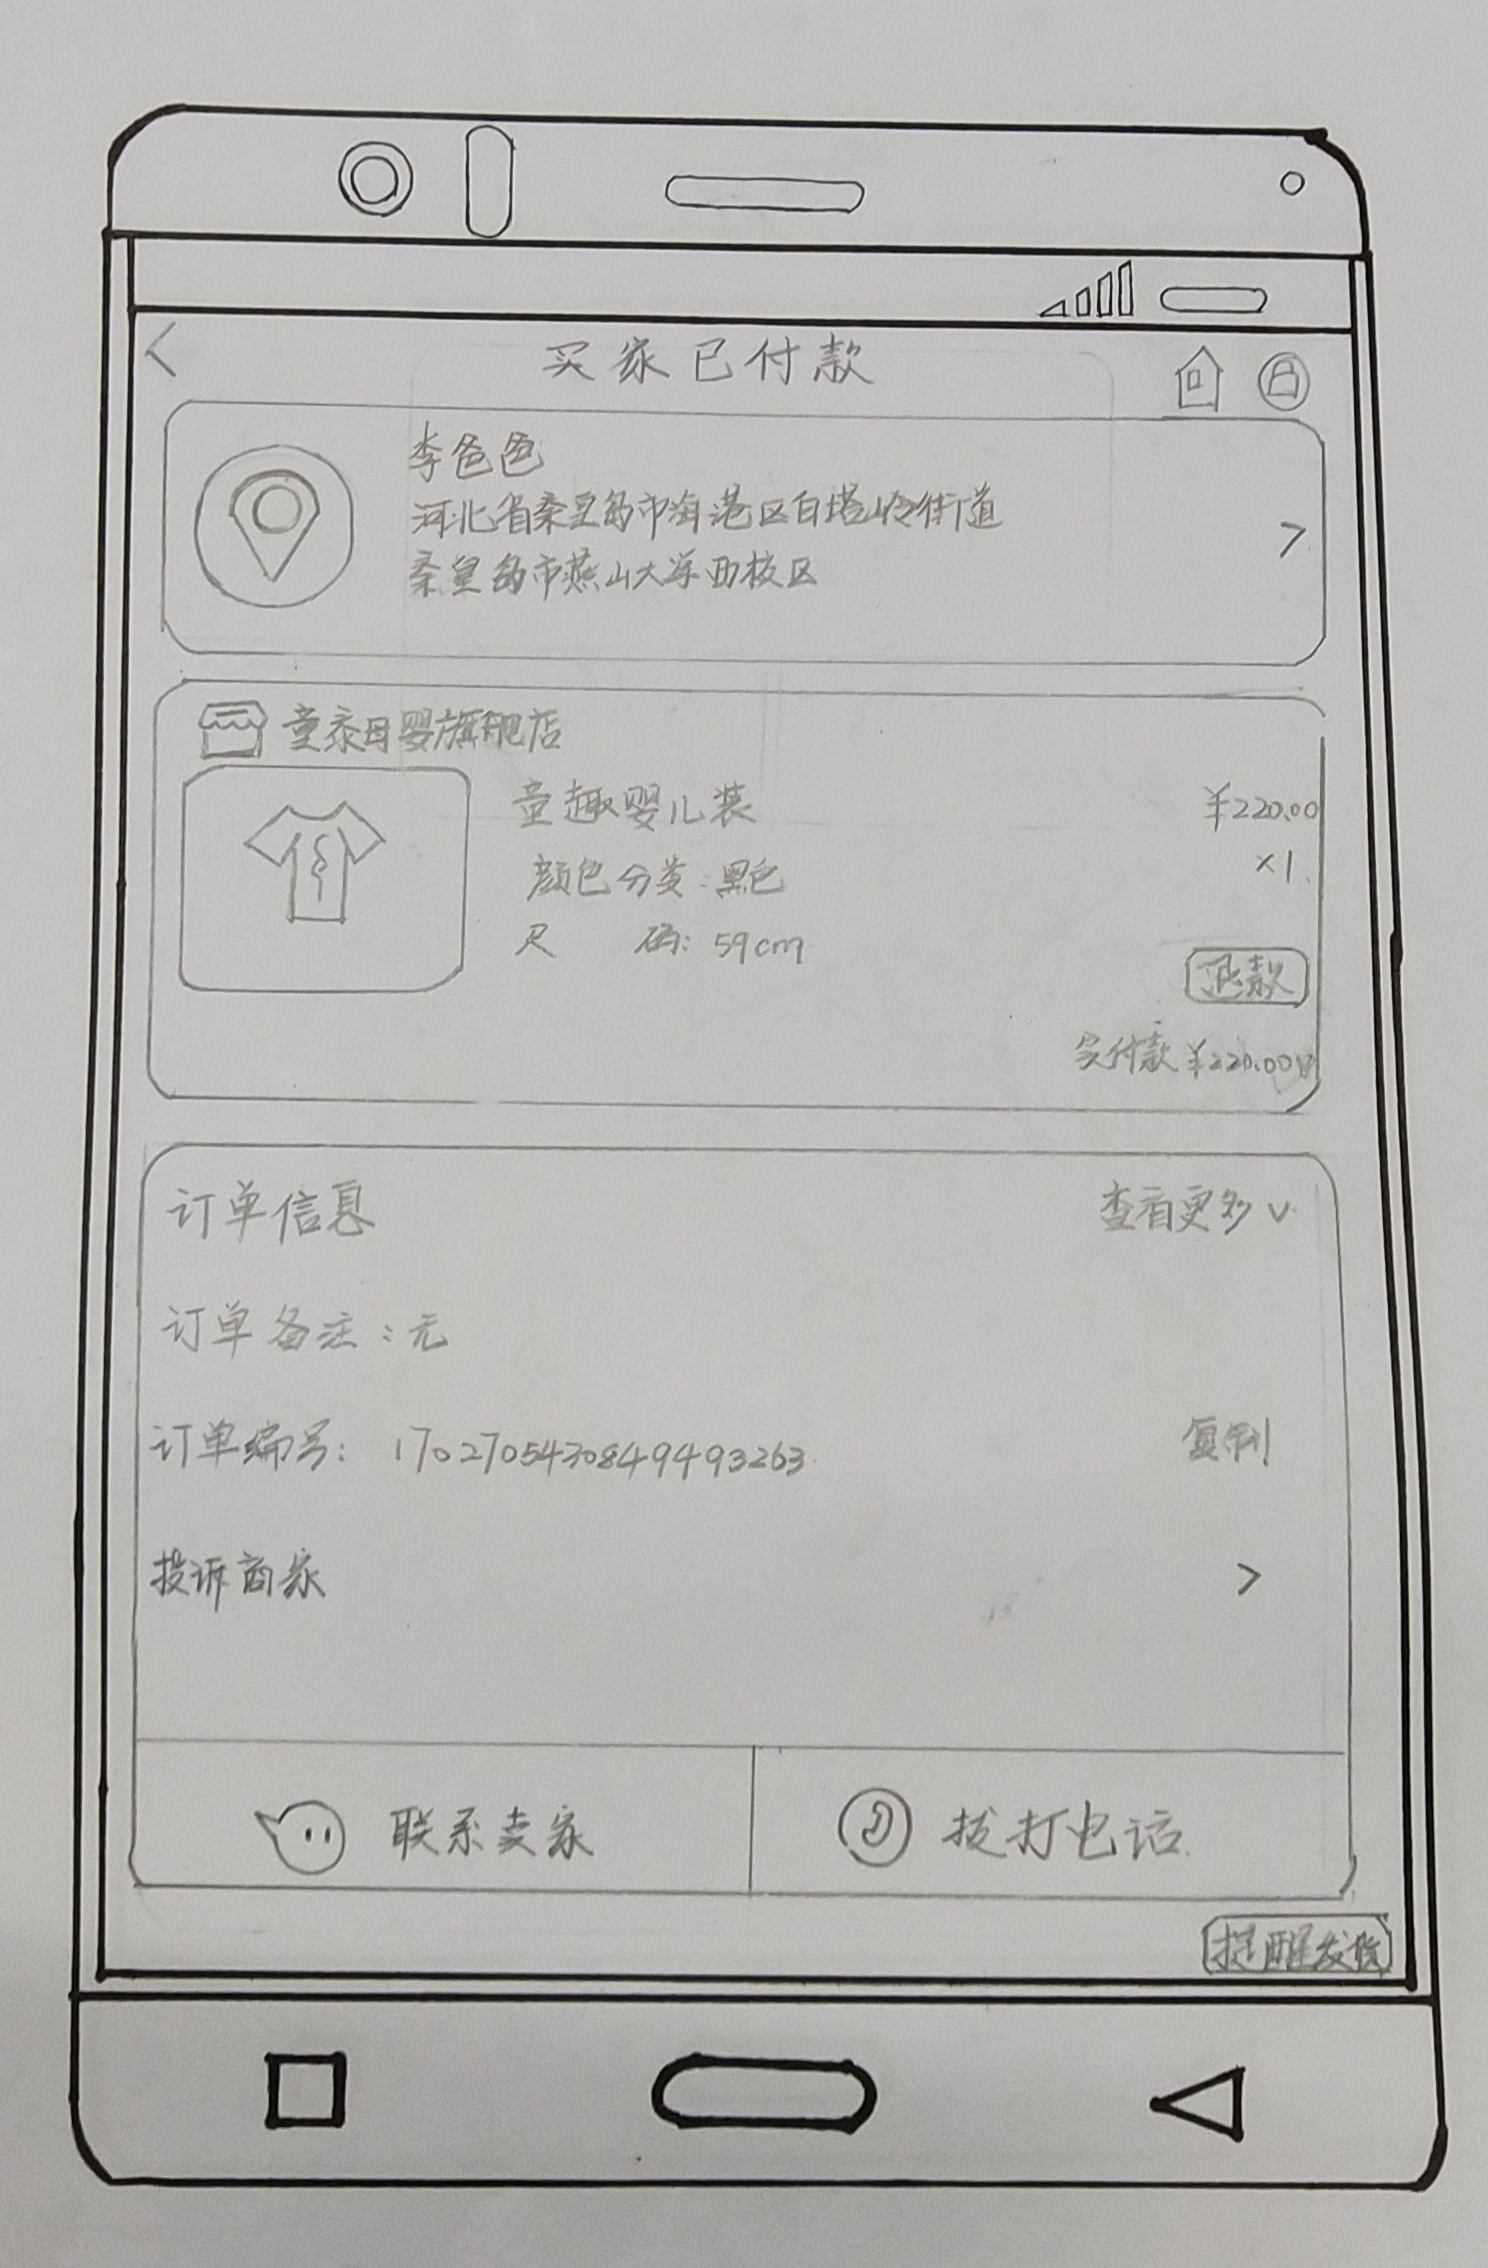 买家已付款
李爸爸
河北省秦皇岛市海港区白塔岭街道
秦皇岛市燕山大学西校区
童泰母婴旗舰店
童趣婴儿装 ¥220.00
颜色分类:黑色 ×1
尺 码:59cm
退款
实付款 ¥220.00
订单信息 查看更多
订单备注:无
订单编号: 1702705430849493263 复制
投诉商家 >
联系卖家 拨打电话
提醒发货